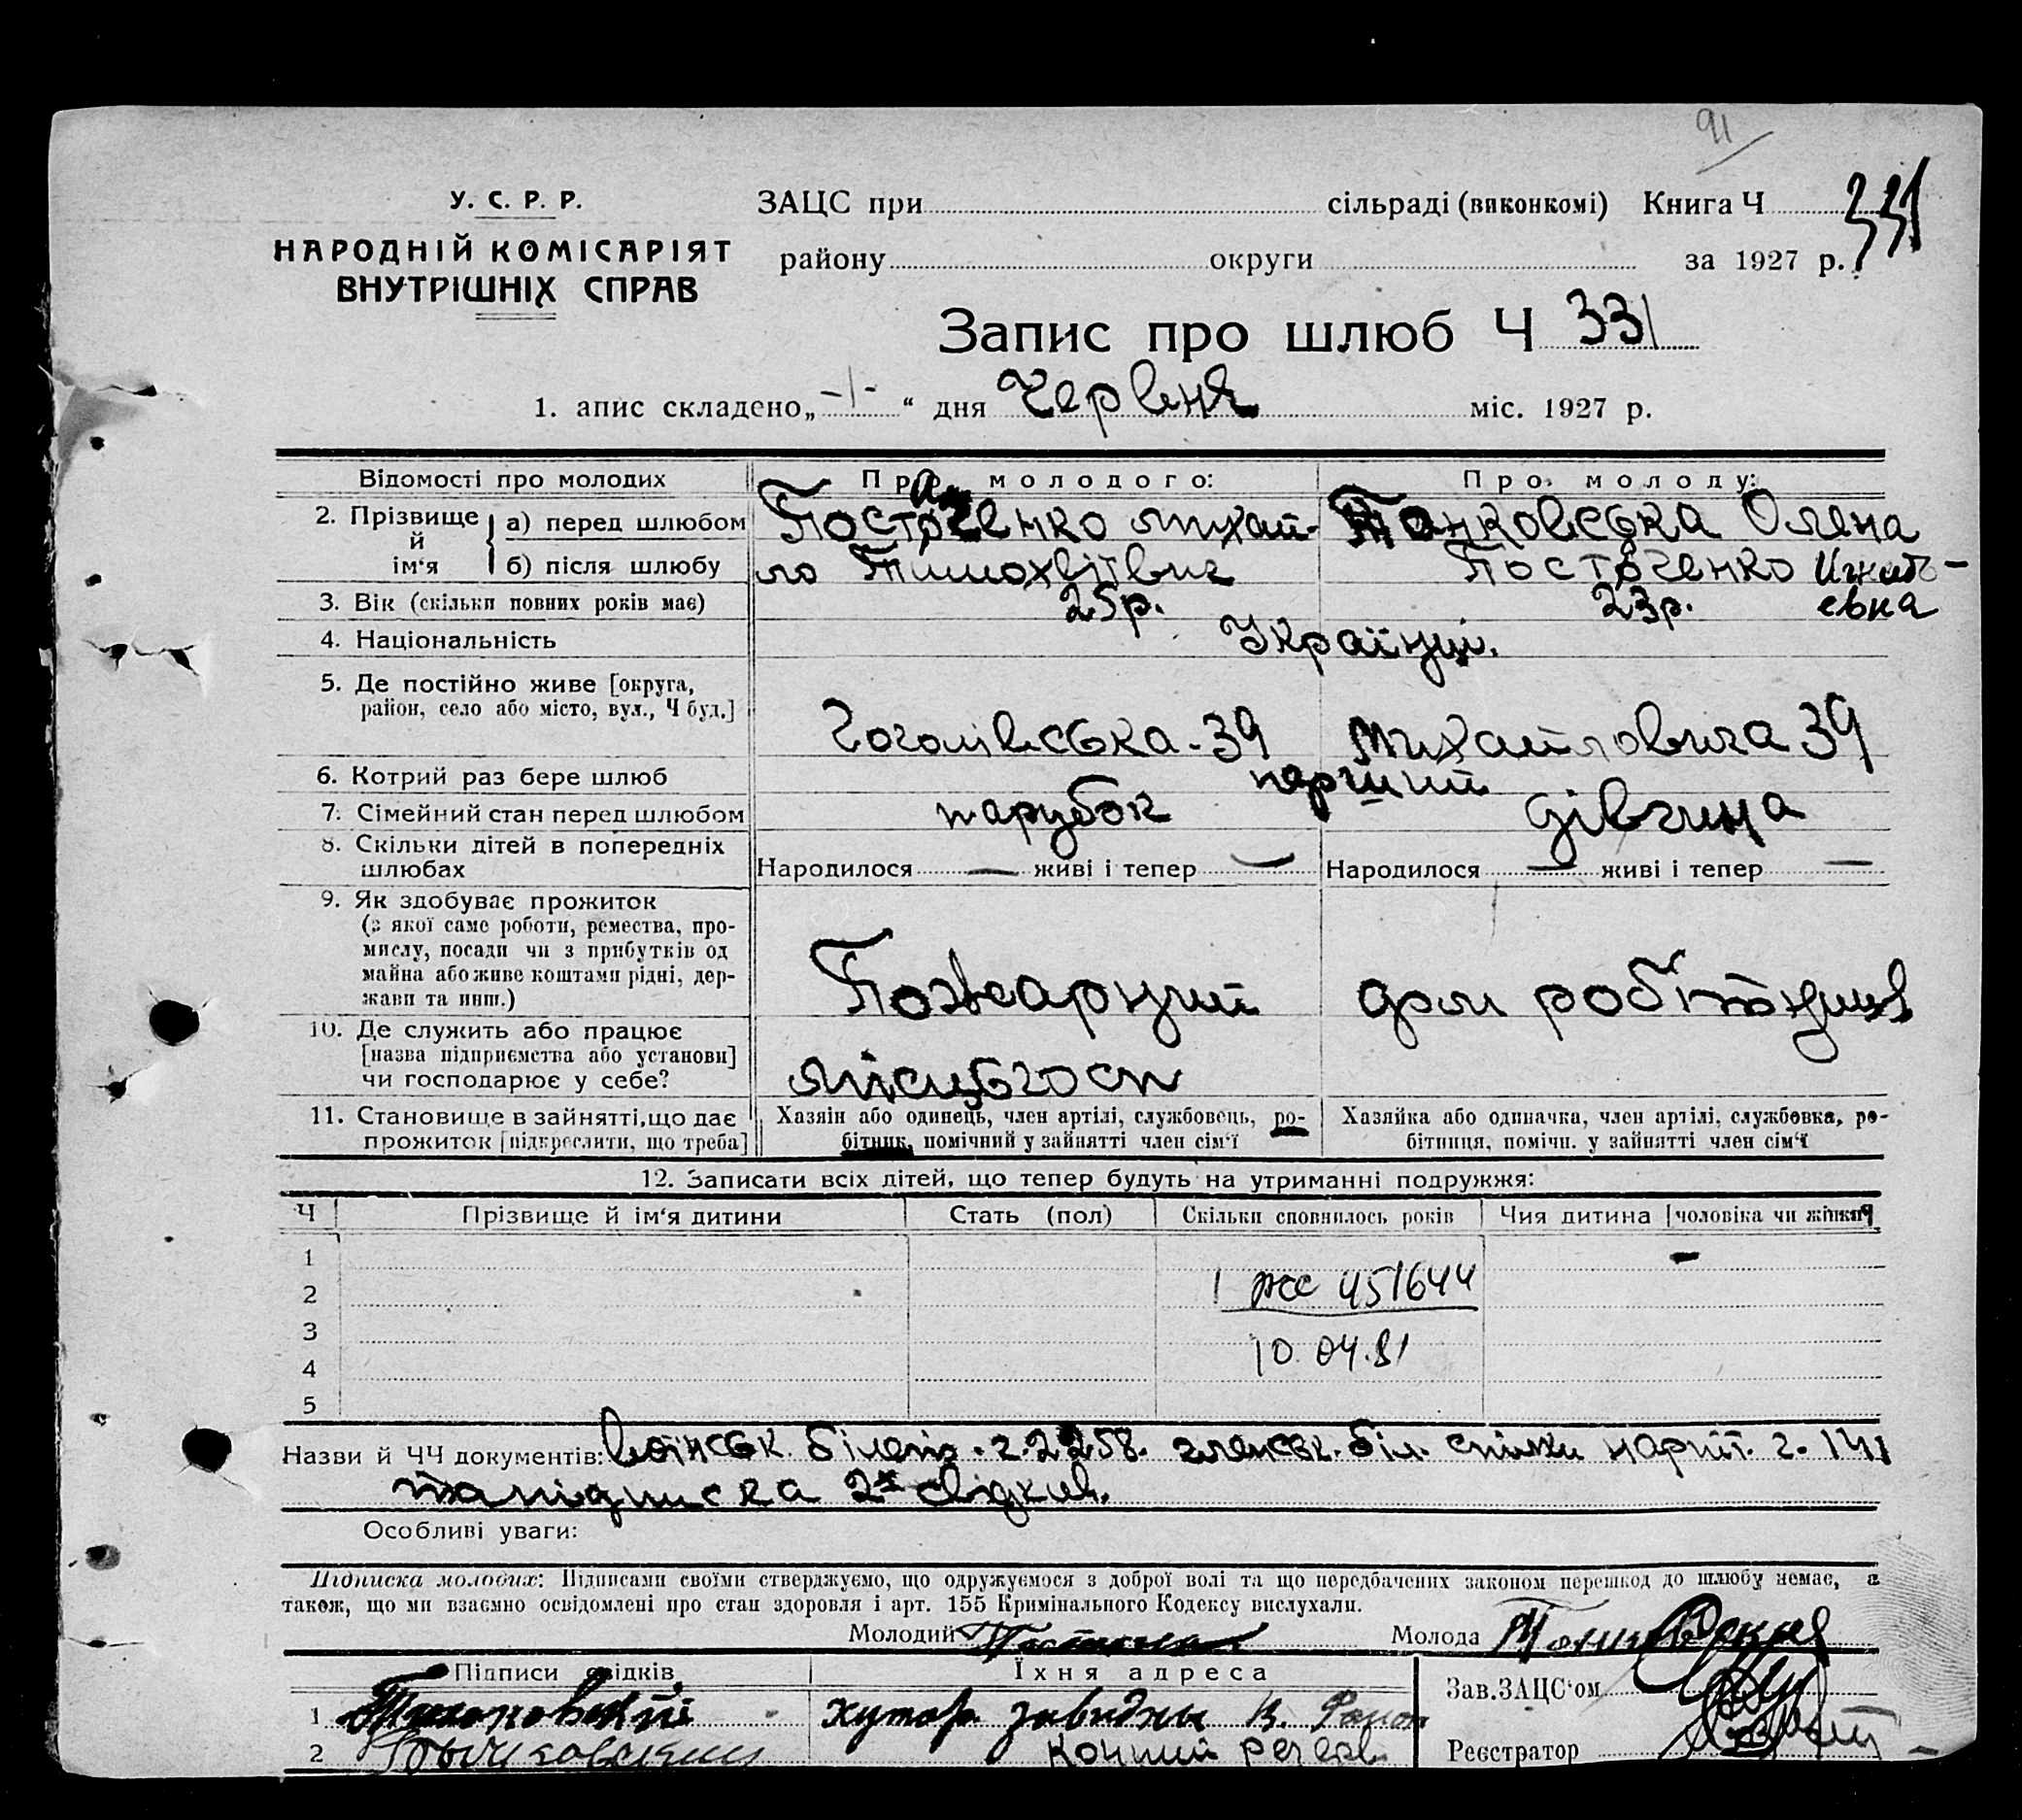 91
У. С. Р. Р.
НАРОДНІЙ КОМІСАРІЯТ
ВНУТРІШНІХ СПРАВ
ЗАЦС при сільраді (виконкомі) Книга Ч 331
району округи за 1927 р.
Запис про шлюб Ч 331
1. апис складено „-1-“ дня Червня міс. 1927 р.
Відомості про молодих Про молодого: Про молоду:
2. Прізвище й ім‘я
а) перед шлюбом Постаченко Михай- Танковська Олена
б) після шлюбу ло Тимохвіївич Постаченко Игнать-
евна
3. Вік (скільки повних років має) 25р. 23р.
4. Національність Українці.
5. Де постійно живе [округа,
район, село або місто, вул., Ч буд.] Гоголівська-39 39
6. Котрий раз бере шлюб перший
7. Сімейний стан перед шлюбом парубок дівчина
8. Скільки дітей в попередніх
шлюбах Народилося — живі і тепер — Народилося — живі і тепер —
9. Як здобуває прожиток
(з якої саме роботи, ремества, про-
мислу, посади чи з прибутків од
майна або живе коштами рідні, дер-
жави та инш.) Пожарний дом робітниця
10. Де служить або працює
[назва підприємства або установи]
чи господарює у себе? Місцьгосп
11. Становище в зайнятті, що дає
прожиток [підкреслити, що треба]
Хазяїн або одинець, член артілі, службовець, ро-
бітник, помічний у зайнятті член сім‘ї
Хазяйка або одиначка, член артілі, службовка, ро-
бітниця, помічн. у зайнятті член сім‘ї
12. Записати всіх дітей, що тепер будуть на утриманні подружжя:
Ч Прізвище й ім‘я дитини Стать (пол) Скільки сповнилось років Чия дитина [чоловіка чи жінки]
1 -
2 451644
3 10.04.81
4
5
Назви й ЧЧ документів: Воїнськ. білет. ч. 2258. членськ. біл. спілки нархіт. ч. 1411
та підписка 2х свідків.
Особливі уваги:
Підписка молодих: Підписами своїми стверджуємо, що одружуємося з доброї волі та що передбачених законом перешкод до шлюбу немає, а
також, що ми взаємно освідомлені про стан здоровля і арт. 155 Кримінального Кодексу вислухали.
Молодий Молода
Підписи свідків Їхня адреса Зав. ЗАЦС‘ом
1 хутор
2 Реєстратор